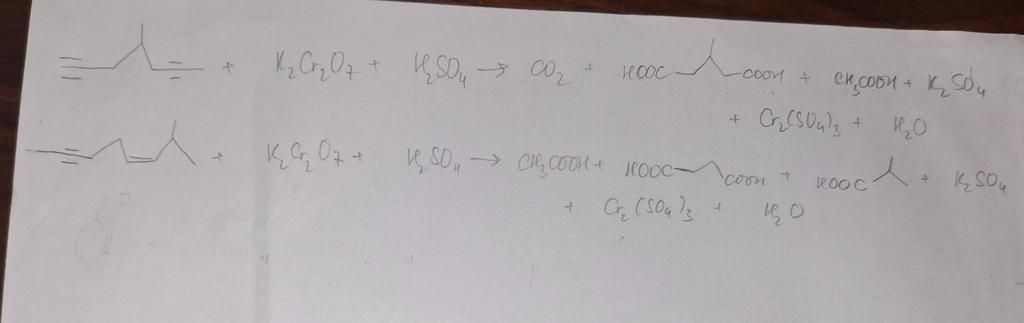 + K₂Cr₂O₇ + H₂SO₄ → CO₂ + HOOC COOH + CH₃COOH + K₂SO₄
+ Cr₂(SO₄)₃ + H₂O
+ K₂Cr₂O₇ + H₂SO₄ → CH₃COOH + HOOC COOH + HOOC + K₂SO₄
+ Cr₂(SO₄)₃ + H₂O